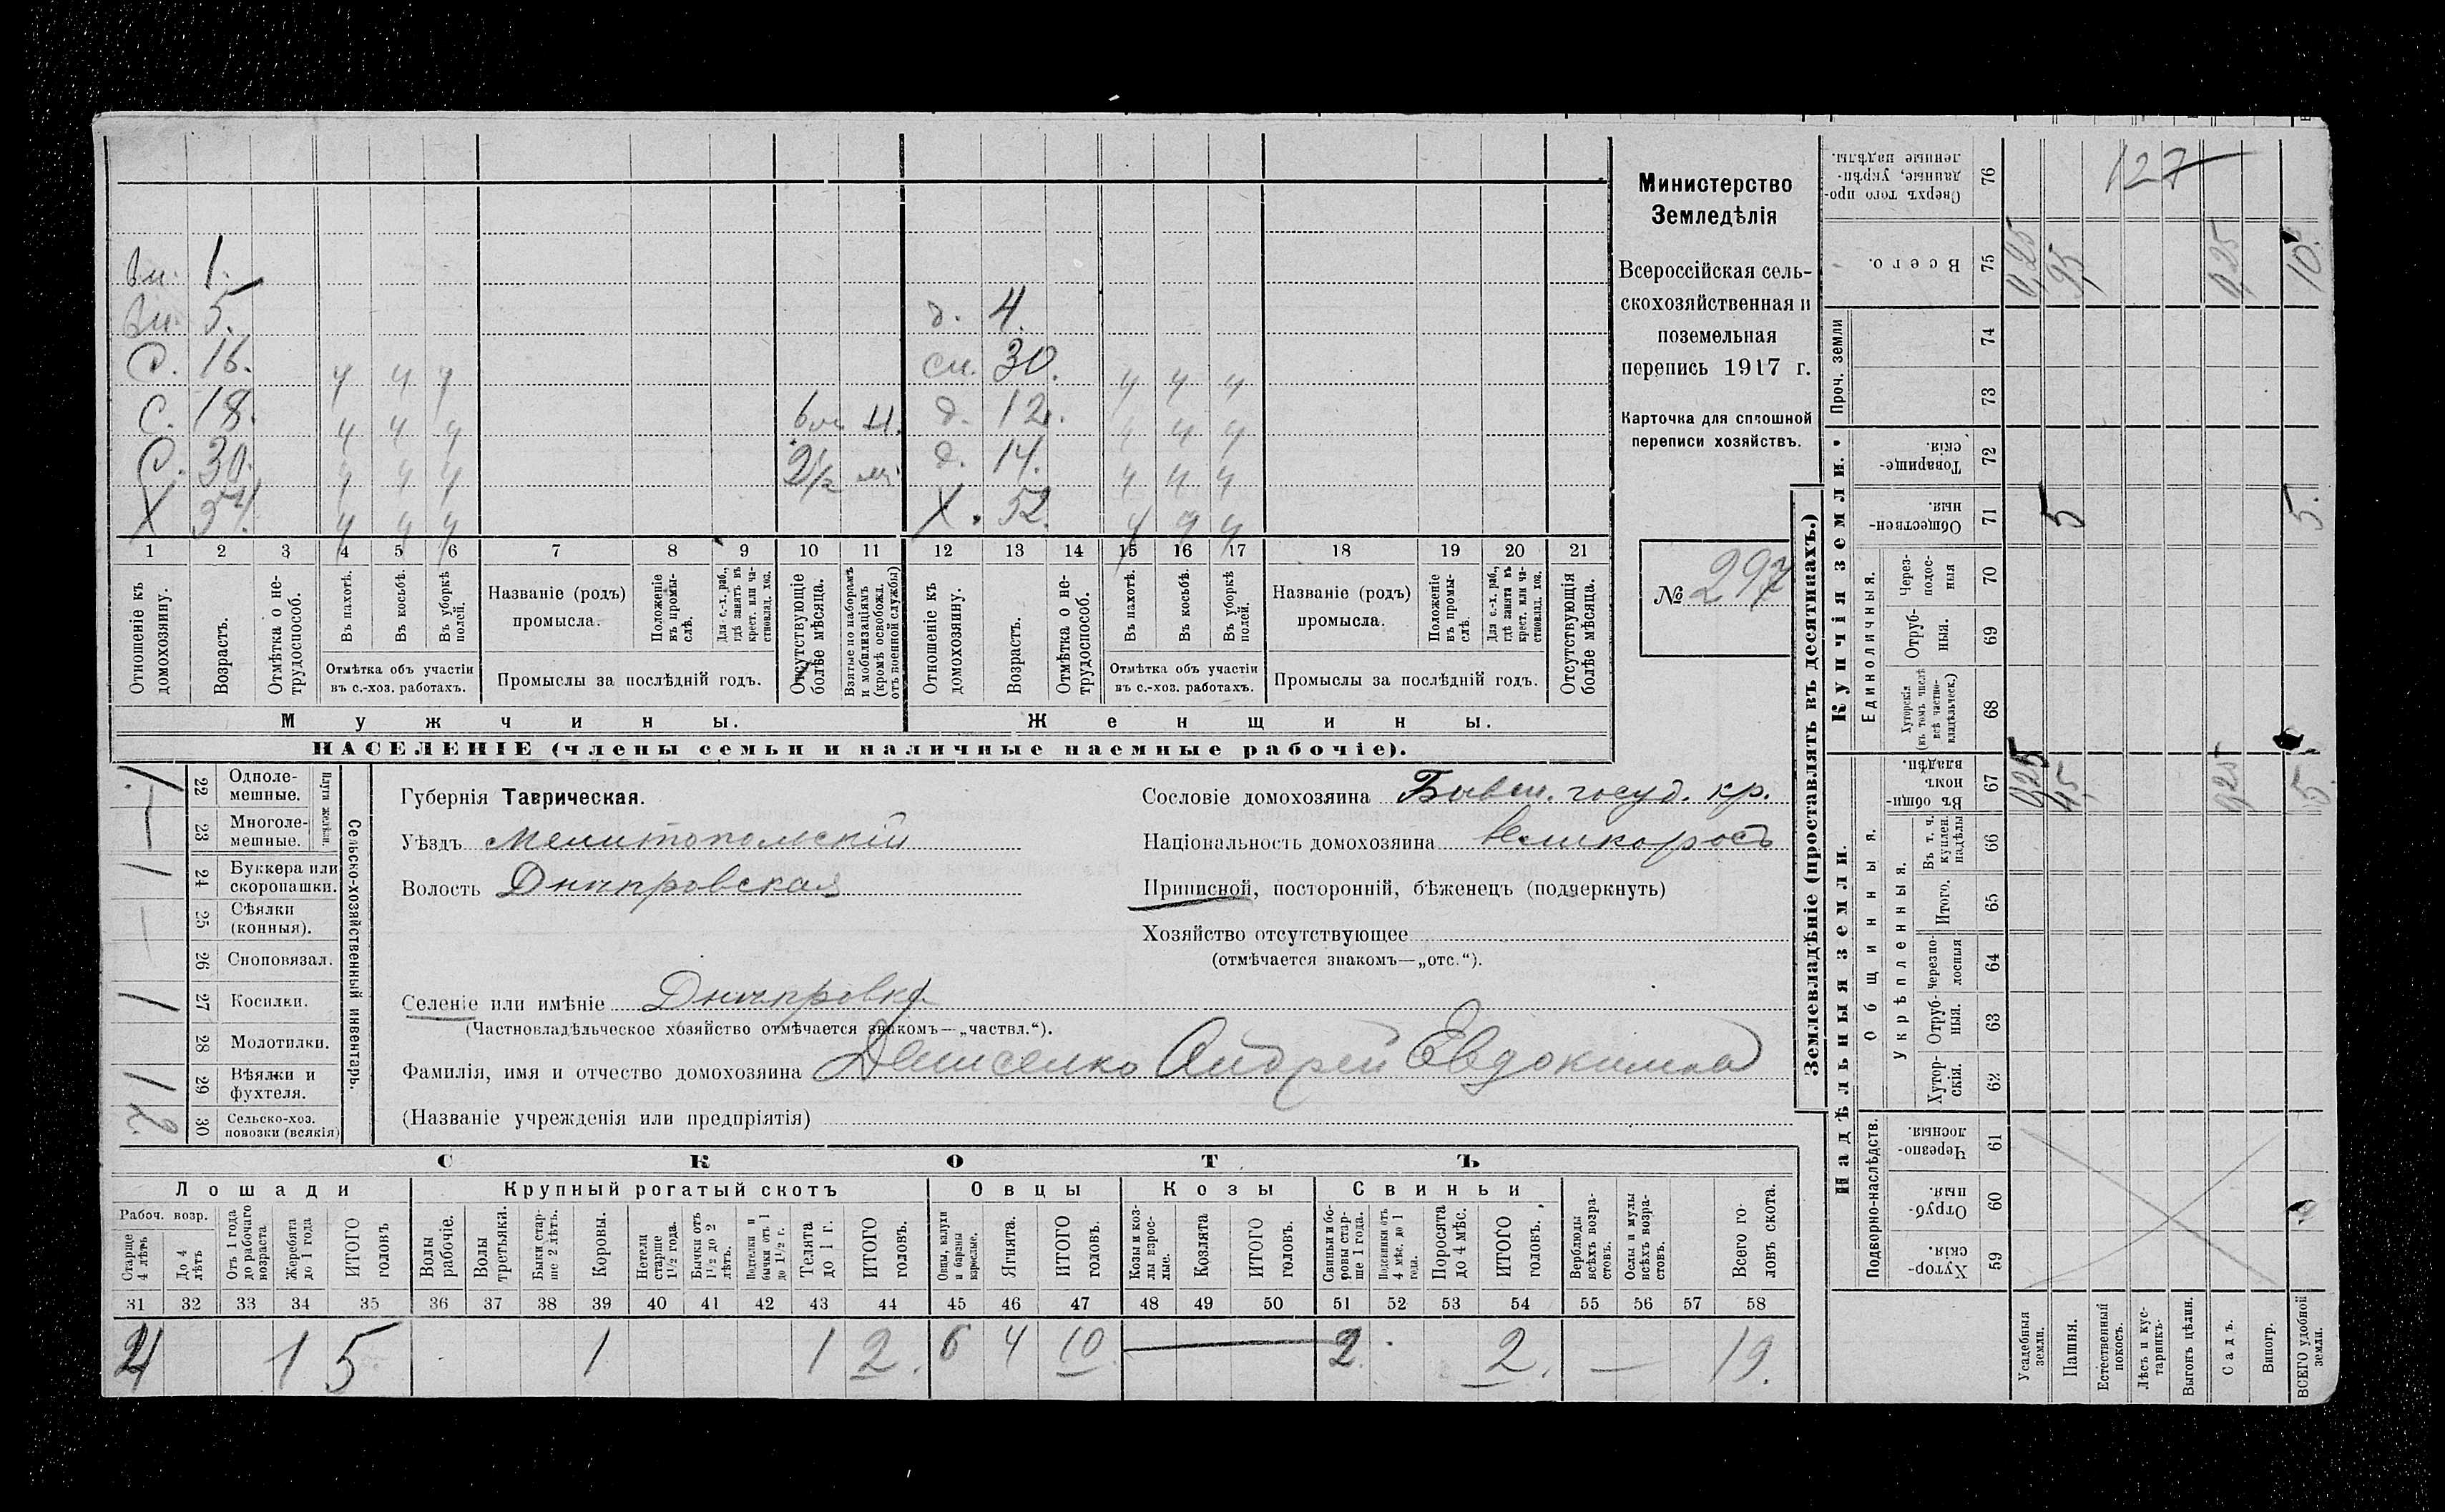 вн. 1.
вн. 5. д. 4.
С. 16. ч ч ч сн. 30. ч ч ч
С. 18. ч ч ч д. 12. ч ч ч
С. 30. ч ч ч 2 1/2 д. 14. ч ч ч
Х ч ч ч Х. 52. ч ч ч
1 2 3 4 5 6 7 8 9 10 11 12 13 14 15 16 17 18 19 20 21
Отношеніе къ домохозяину.
Возрастъ.
Отмѣтка о не-трудоспособ.
Въ пахотѣ.
Въ косьбѣ.
Въ уборкѣ полей.
Отмѣтка объ участіи
въ с.-хоз. работахъ.
Названіе (родъ)
промысла.
Положеніе въ промы-слѣ.
Для с.-х. раб., гдѣ занятъ въ крест. или ча-стновлад. хоз.
Промыслы за послѣдній годъ.
Отсутствующіе болѣе мѣсяца.
Взятые по наборамъ и мобилизаціямъ (кромѣ освобожд. отъ военной службы)
Отношеніе къ домохозяину.
Возрастъ.
Отмѣтка о не-трудоспособ.
Въ пахотѣ.
Въ косьбѣ.
Въ уборкѣ полей.
Отмѣтка объ участіи
въ с.-хоз. работахъ.
Названіе (родъ)
промысла.
Положеніе въ промы-слѣ.
Для с.-х. раб., гдѣ занята въ крест. или ча-стновлад. хоз.
Промыслы за послѣдній годъ.
Отсутствующія болѣе мѣсяца.
Мужчины. Женщины.
НАСЕЛЕНІЕ (члены семьи и наличные наемные рабочіе).
Министерство
Земледѣлія
Всероссійская сель-
скохозяйственная и
поземельная
перепись 1917 г.
Карточка для сплошной
переписи хозяйствъ.
№ 297
Сельско-хозяйственный инвентарь.
Плуги желѣзн.
22 Одноле-мешные. 1
23 Многоле-мешные. 1
24 Буккера или скоропашки. 1
25 Сѣялки (конныя). —
26 Сноповязал.
27 Косилки. 1
28 Молотилки.
29 Вѣялки и фухтеля. 1
30 Сельско-хоз. повозки (всякія) 2
Губернія Таврическая.
Уѣздъ Мелитопольскій
Волость Днѣпровская
Селеніе или имѣніе Днѣпровка
(Частновладѣльческое хозяйство отмѣчается знакомъ—„частвл.“).
Сословіе домохозяина Бывш. госуд. кр.
Національность домохозяина великоросъ
Приписной, посторонній, бѣженецъ (подчеркнуть)
Хозяйство отсутствующее
(отмѣчается знакомъ—„отс.“).
Фамилія, имя и отчество домохозяина Денисенко Андрей Евдокимов
(Названіе учрежденія или предпріятія)
СКОТЪ
Лошади Крупный рогатый скотъ Овцы Козы Свиньи
Рабоч. возр.
Старше 4 лѣтъ
До 4 лѣтъ
Отъ 1 года до рабочаго возраста
Жеребята до 1 года
ИТОГО головъ
Волы рабочіе.
Волы третьяки.
Быки стар-ше 2 лѣтъ.
Коровы.
Нетели старше 1 1/2 года.
Бычки отъ 1 1/2 до 2 лѣтъ.
Подтелки и бычки отъ 1 до 1 1/2 г.
Телята до 1 г.
ИТОГО головъ.
Овцы, валухи и бараны взрослые.
Ягнята.
ИТОГО головъ.
Козы и коз-лы взрос-лые.
Козлята
ИТОГО головъ.
Свиньи и бо-ровы стар-ше 1 года.
Подсвинки отъ 4 мѣс. до 1 года.
Поросята до 4 мѣс.
ИТОГО головъ.
Верблюды всѣхъ возра-стовъ.
Ослы и мулы всѣхъ возра-стовъ.
Всего го-ловъ скота.
31 32 33 34 35 36 37 38 39 40 41 42 43 44 45 46 47 48 49 50 51 52 53 54 55 56 57 58
4 1 5 1 1 2. 6 4 10 — 2 2. — 19.
Землевладѣніе (проставлять въ десятинахъ.)
Надѣльныя земли. Купчія земли.
Подворно-наслѣдств.
Общинныя.
Укрѣпленныя.
Единоличныя.
Проч. земли
59 Хутор-скія.
60 Отруб-ныя.
61 Черезпо-лосныя.
62 Хутор-скія.
63 Отруб-ныя.
64 Черезпо-лосныя
65 Итого.
66 Въ т. ч. куплен. надѣлы
67 Въ общин-номъ владѣн. 0,25 4,5 0,25 5.
68 Хуторскія (въ томъ числѣ всѣ частно-владѣльческ.)
69 Отруб-ныя.
70 Через-полос-ныя
71 Обществен-ныя. 5 5.
72 Товарище-скія.
73
74
75 Всего. 0,25 9,5 0,25 10.
76 Сверхъ того про-данные, укрѣп-ленные надѣлы. 127
Усадебныя земли.
Пашня.
Естественный покосъ.
Лѣсъ и кус-тарникъ.
Выгонъ цѣлин.
Садъ.
Виногр.
ВСЕГО удобной земли.